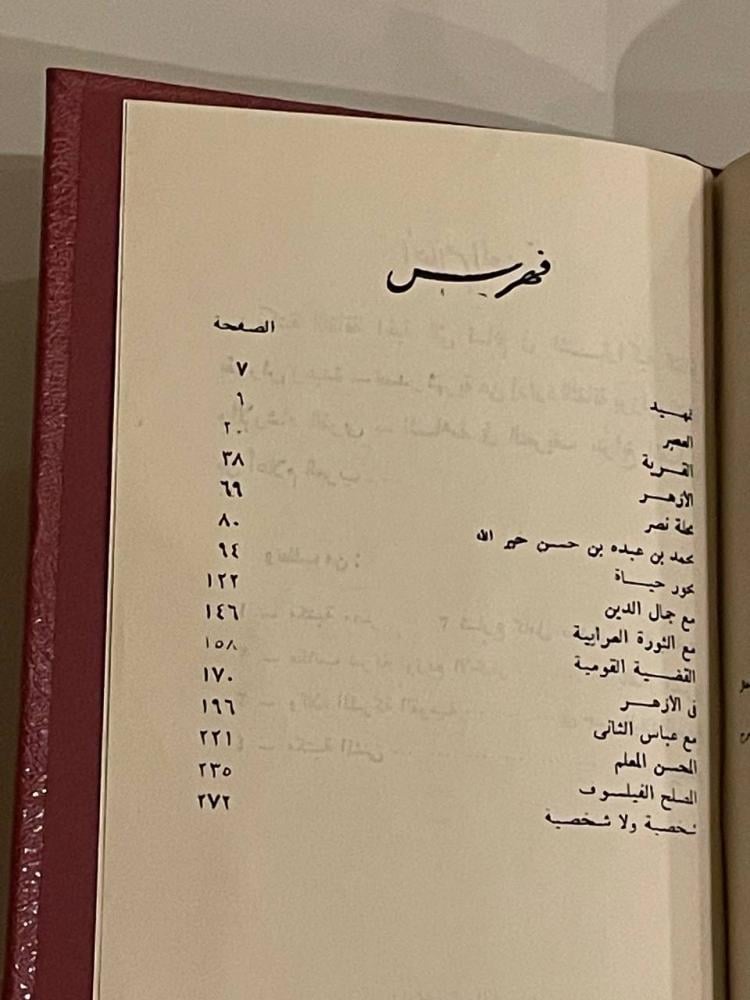 فهرس
الصفحة
تمهيد ٧
العصر ٩
القرية ٢٠
الأزهر ٣٨
محلة نصر ٦٩
محمد بن عبده بن حسن خير الله ٨٠
محور حياة ٩٤
مع جمال الدين ١٢٢
مع الثورة العرابية ١٤٦
القضية القومية ١٥٨
فى الأزهر ١٧٠
مع عباس الثانى ١٩٦
المحسن المعلم ٢٢١
المصلح الفيلسوف ٢٣٥
شخصية ولا شخصية ٢٧٢